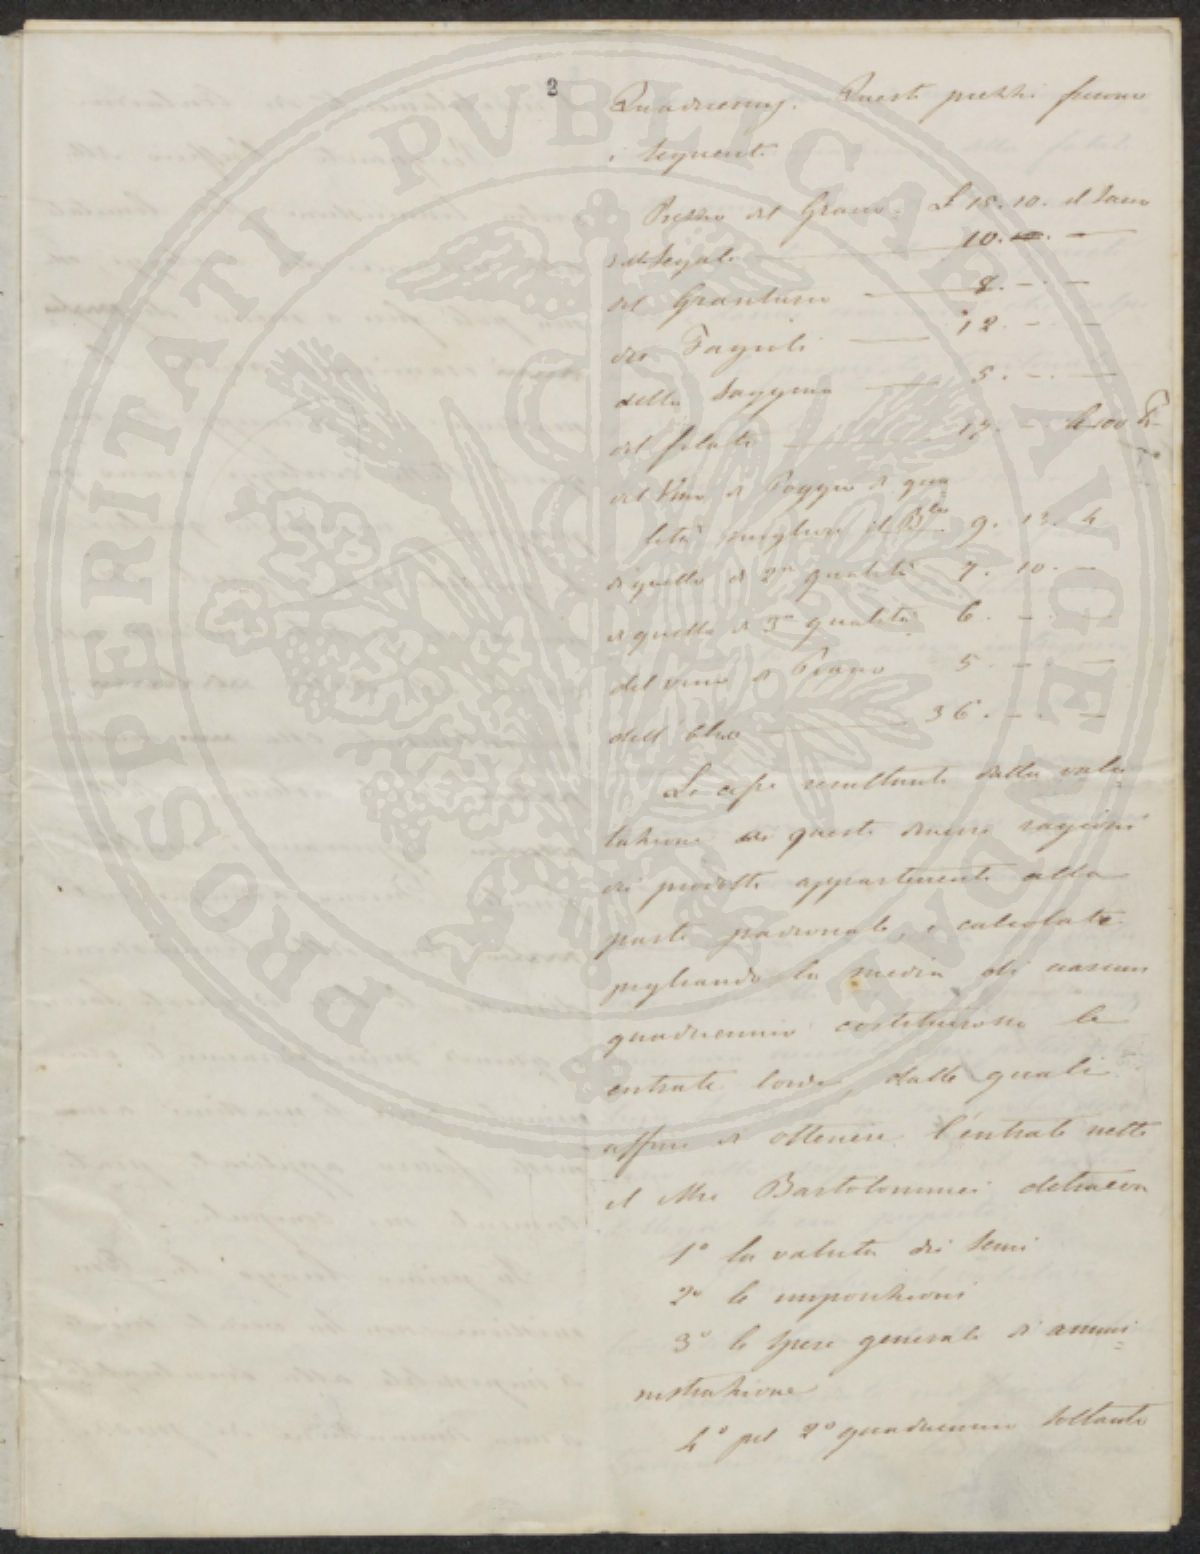 2
Quadriennj. Questi prezzi furono
i seguenti
Prezzo del Grano. £ 15. 10. il Sacco
della Segale — 10. — —
del Granturco — 8. — —
dei Fagioli — 12. — —
della Saggina — 5. — —
del — 17. —
del Vino di Poggio di qua
lità migliore il Ble 9. 13. 4
di quello di 2a qualità 7. 10. —
di quello di 3a qualità 6. — —
del vino di Piano 5. — —
dell' Olio — 36. — —
Le cifre resultanti dalla valu=
tazione di queste diverse ragioni
di prodotti appartenenti alla
parte padronale, e calcolate
pigliando la media di ciascun
quadriennio costituirono le
entrate lorde, dalle quali
affine di ottenere l'entrate nette
il Mse Bartolommei detraeva
1o la valuta dei Semi
2o le imposizioni
3o le spese generali di ammi=
nistrazione
4o pel 2o quadriennio soltanto
PROSPERITATI PVBLICAE AVGENDAE